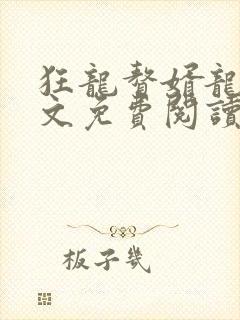 狂龍贅婿龍
文免費閱讀
板子幾